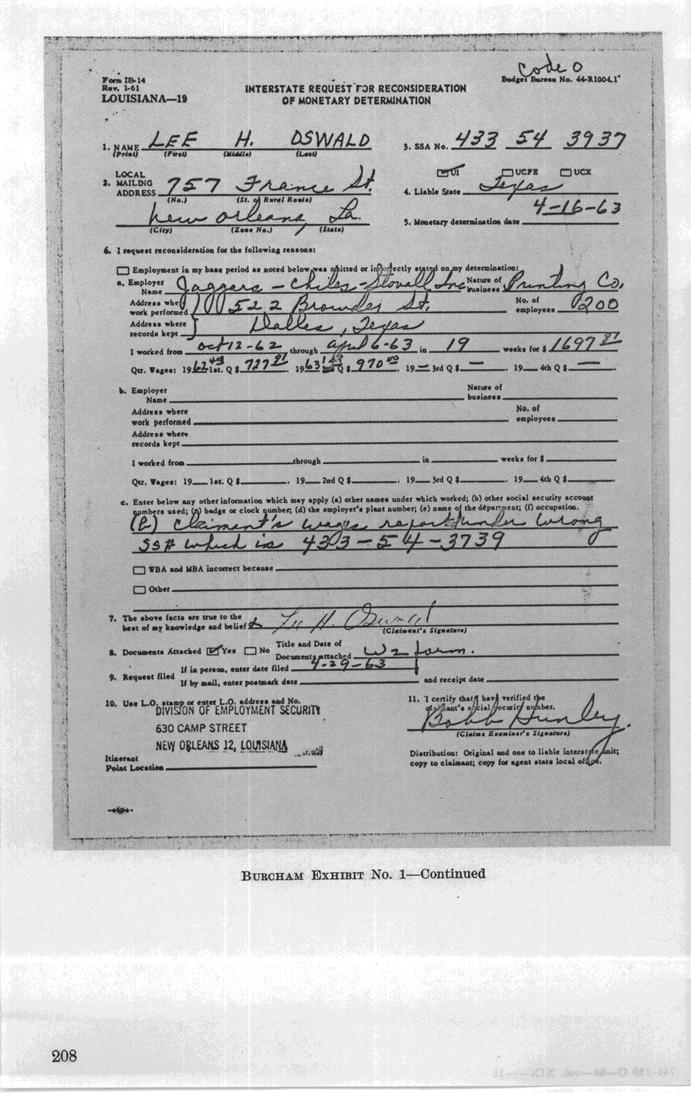 Code O
Form IB-14
Rev. 1-61
LOUISIANA—19
Budget Bureau No. 44-R1004.1
INTERSTATE REQUEST FOR RECONSIDERATION
OF MONETARY DETERMINATION
1. NAME LEE H. OSWALD
(Print) (First) (Middle) (Last)
3. SSA No. 433 54 3937
UI UCFE UCX
LOCAL
2. MAILING
ADDRESS 757 France St.
(No.) (St. or Rural Route)
4. Liable State Texas
New Orleans La.
(City) (Zone No.) (State)
5. Monetary determination date 4-16-63
6. I request reconsideration for the following reasons:
Employment in my base period as noted below was omitted or incorrectly stated on my determination:
a. Employer
Name Jaggars - Chiles - Stovall Inc Nature of business Printing Co.
Address where
work performed 522 Browder St. No. of employees 200
Address where
records kept Dallas, Texas
I worked from Oct 12-62 through April 6-63 in 19 weeks for $ 1697
Qtr. Wages: 1962 1st. Q $ 727 1963 Q $ 970 19— 3rd Q $ — 19— 4th Q $ —
b. Employer
Name Nature of business
Address where
work performed No. of employees
Address where
records kept
I worked from through in weeks for $
Qtr. Wages: 19 1st. Q $ . 19 2nd Q $ . 19 3rd Q $ . 19 4th Q $ .
c. Enter below any other information which may apply (a) other names under which worked; (b) other social security account
numbers used; (c) badge or clock number; (d) the employer's plant number; (e) name of the department; (f) occupation.
(B) Claiment's wages report under wrong
SS# which is 433-54-3739
WBA and MBA incorrect because
Other
7. The above facts are true to the
best of my knowledge and belief Lee H Oswald
(Claimant's Signature)
8. Documents Attached Yes No Title and Date of
Documents attached W2 form.
9. Request filed If in person, enter date filed 4-29-63
If by mail, enter postmark date and receipt date
10. Use L.O. stamp or enter L.O. address and No.
DIVISION OF EMPLOYMENT SECURITY
630 CAMP STREET
NEW ORLEANS 12, LOUISIANA
Itinerant
Point Location
11. I certify that I have verified the
claimant's social security number.
Bobb Hunley
(Claims Examiner's Signature)
Distribution: Original and one to liable interstate unit;
copy to claimant; copy for agent state local office.
BURCHAM EXHIBIT No. 1—Continued
208